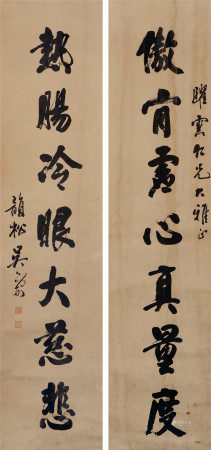 躍雲仁兄大雅正
傲骨虛心真量度
熱腸冷眼大慈悲
韻松吳